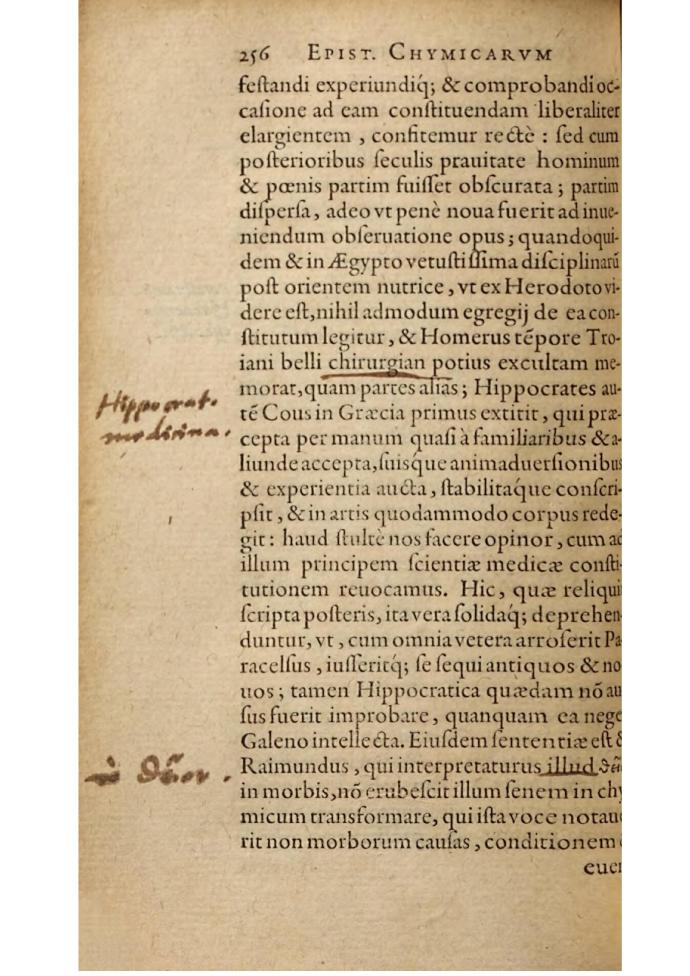 256 EPIST. CHYMICARVM
feſtandi experiundiq́; & comprobandi oc-
caſione ad eam conſtituendam liberaliter
elargientem , confitemur rectè : ſed cum
poſterioribus ſeculis prauitate hominum
& pœnis partim fuiſſet obſcurata ; partim
diſperſa, adeo vt penè noua fuerit ad inue-
niendum obſeruatione opus ; quandoqui-
dem & in Ægypto vetuſtiſſima diſciplinarū
poſt orientem nutrice , vt ex Herodoto vi-
dere eſt, nihil admodum egregij de ea con-
ſtitutum legitur , & Homerus tēpore Tro-
iani belli chirurgian potius excultam me-
morat, quam partes alias ; Hippocrates au-
Hippocrat.
medicina.
tē Cous in Græcia primus extitit , qui præ-
cepta per manum quaſi à familiaribus & a-
liunde accepta, ſuisque animaduerſionibus
& experientia aucta , ſtabilitáque conſcri-
pſit , & in artis quodammodo corpus rede-
git : haud ſtultè nos facere opinor , cum ad
illum principem ſcientiæ medicæ conſti-
tutionem reuocamus. Hic , quæ reliqui
ſcripta poſteris, ita vera ſolidaq́; deprehen-
duntur, vt , cum omnia vetera arroſerit Pa-
racelſus , iuſſeritq́; ſe ſequi antiquos & no
uos ; tamen Hippocratica quædam nō au
ſus fuerit improbare , quanquam ea nege
Galeno intellecta. Eiuſdem ſententiæ eſt &
Raimundus , qui interpretaturus illud
in morbis, nō erubeſcit illum ſenem in chy
micum transformare, qui iſta voce notau
rit non morborum cauſas , conditionem
euen